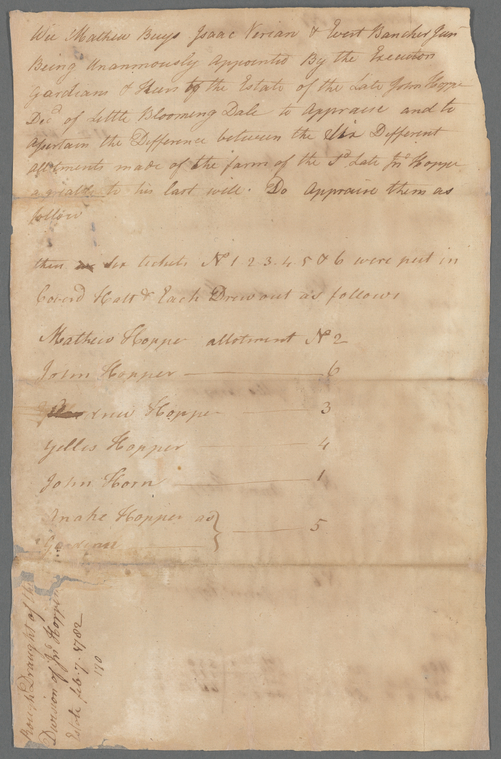 Wee Mathew Buys Isaac Verian & Evert Bancker Jun
Being Unanimously Appointed By the Executors
Gardians & Heirs to the Estate of the Late John Hoppe
Decd of Little Blooming Dale to Appraise and to
assertain the Difference between the Six Different
allotments made of the farm of the sd Late Jno Hopper
to his last will. Do Appraise them as
follow
then six tickets No 1 2 3. 4 5 & 6 were put in
Coverd Hatt & Each Drew out as follows
Mathew Hopper allotment No 2
John Hopper 6
Hopper 3
Yellis Hopper 4
John Horn 1
Hopper as } 5
Rough Draught of the
Division of Jno Hopper
Estate feb. 7. 1782
110